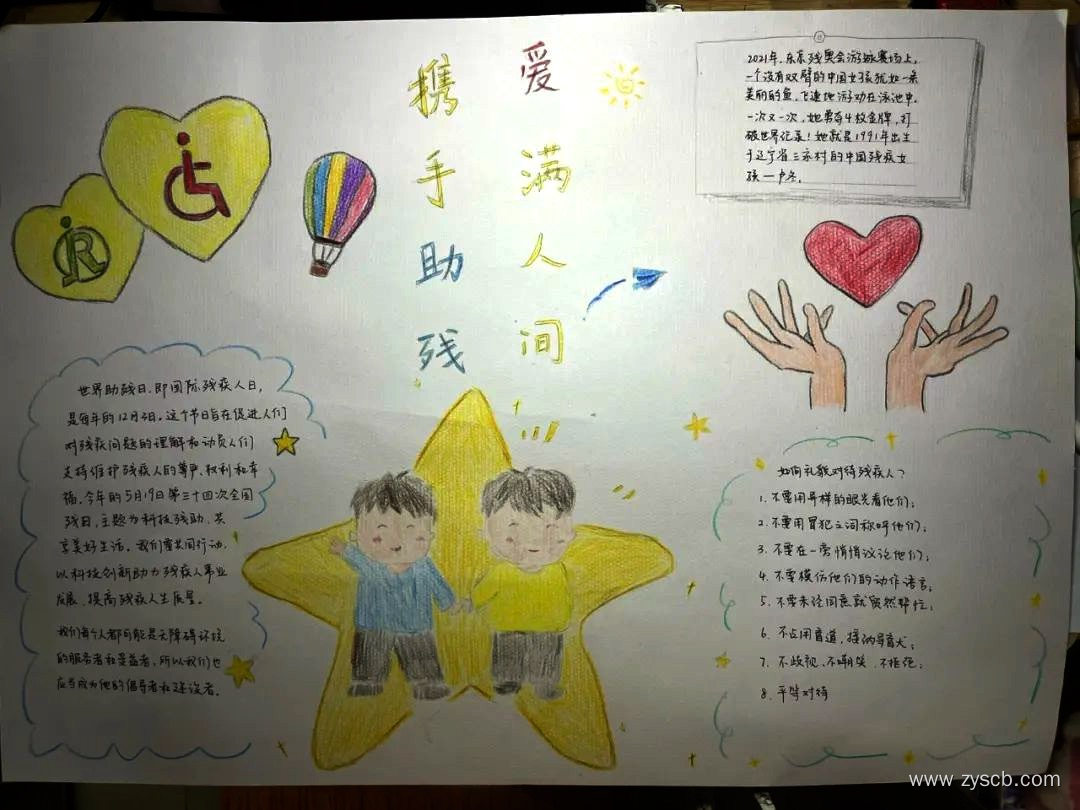 爱满人间
携手助残
2021年,东京残奥会游泳赛场上,
一个没有双臂的中国女孩犹如一条
美丽的鱼,飞速地游动在泳池中.
一次又一次,她勇夺4枚金牌,打
破世界纪录!她就是1991年出生
于辽宁省三家村的中国残疾女
孩一卢冬.
世界助残日,即国际残疾人日,
是每年的12月3日.这个节日旨在促进人们
对残疾问题的理解和动员人们
支持维护残疾人的尊严、权利和幸
福.今年的5月19日第三十四次全国
残日,主题为科技残助,共
享美好生活.我们需共同行动.
以科技创新助力残疾人事业
发展,提高残疾人生质量.
我们每个人都可能是无障碍环境
的服务者和受益者,所以我们也
应当成为他的倡导者和建设者.
如何礼貌对待残疾人?
1.不要用异样的眼光看他们;
2.不要用冒犯之词称呼他们;
3.不要在一旁悄悄议论他们;
4.不要模仿他们的动作语言;
5.不要未经同意就贸然帮忙;
6.不占用盲道,接纳导盲犬;
7.不歧视、不嘲笑、不拒绝;
8.平等对待
www.zyscb.com